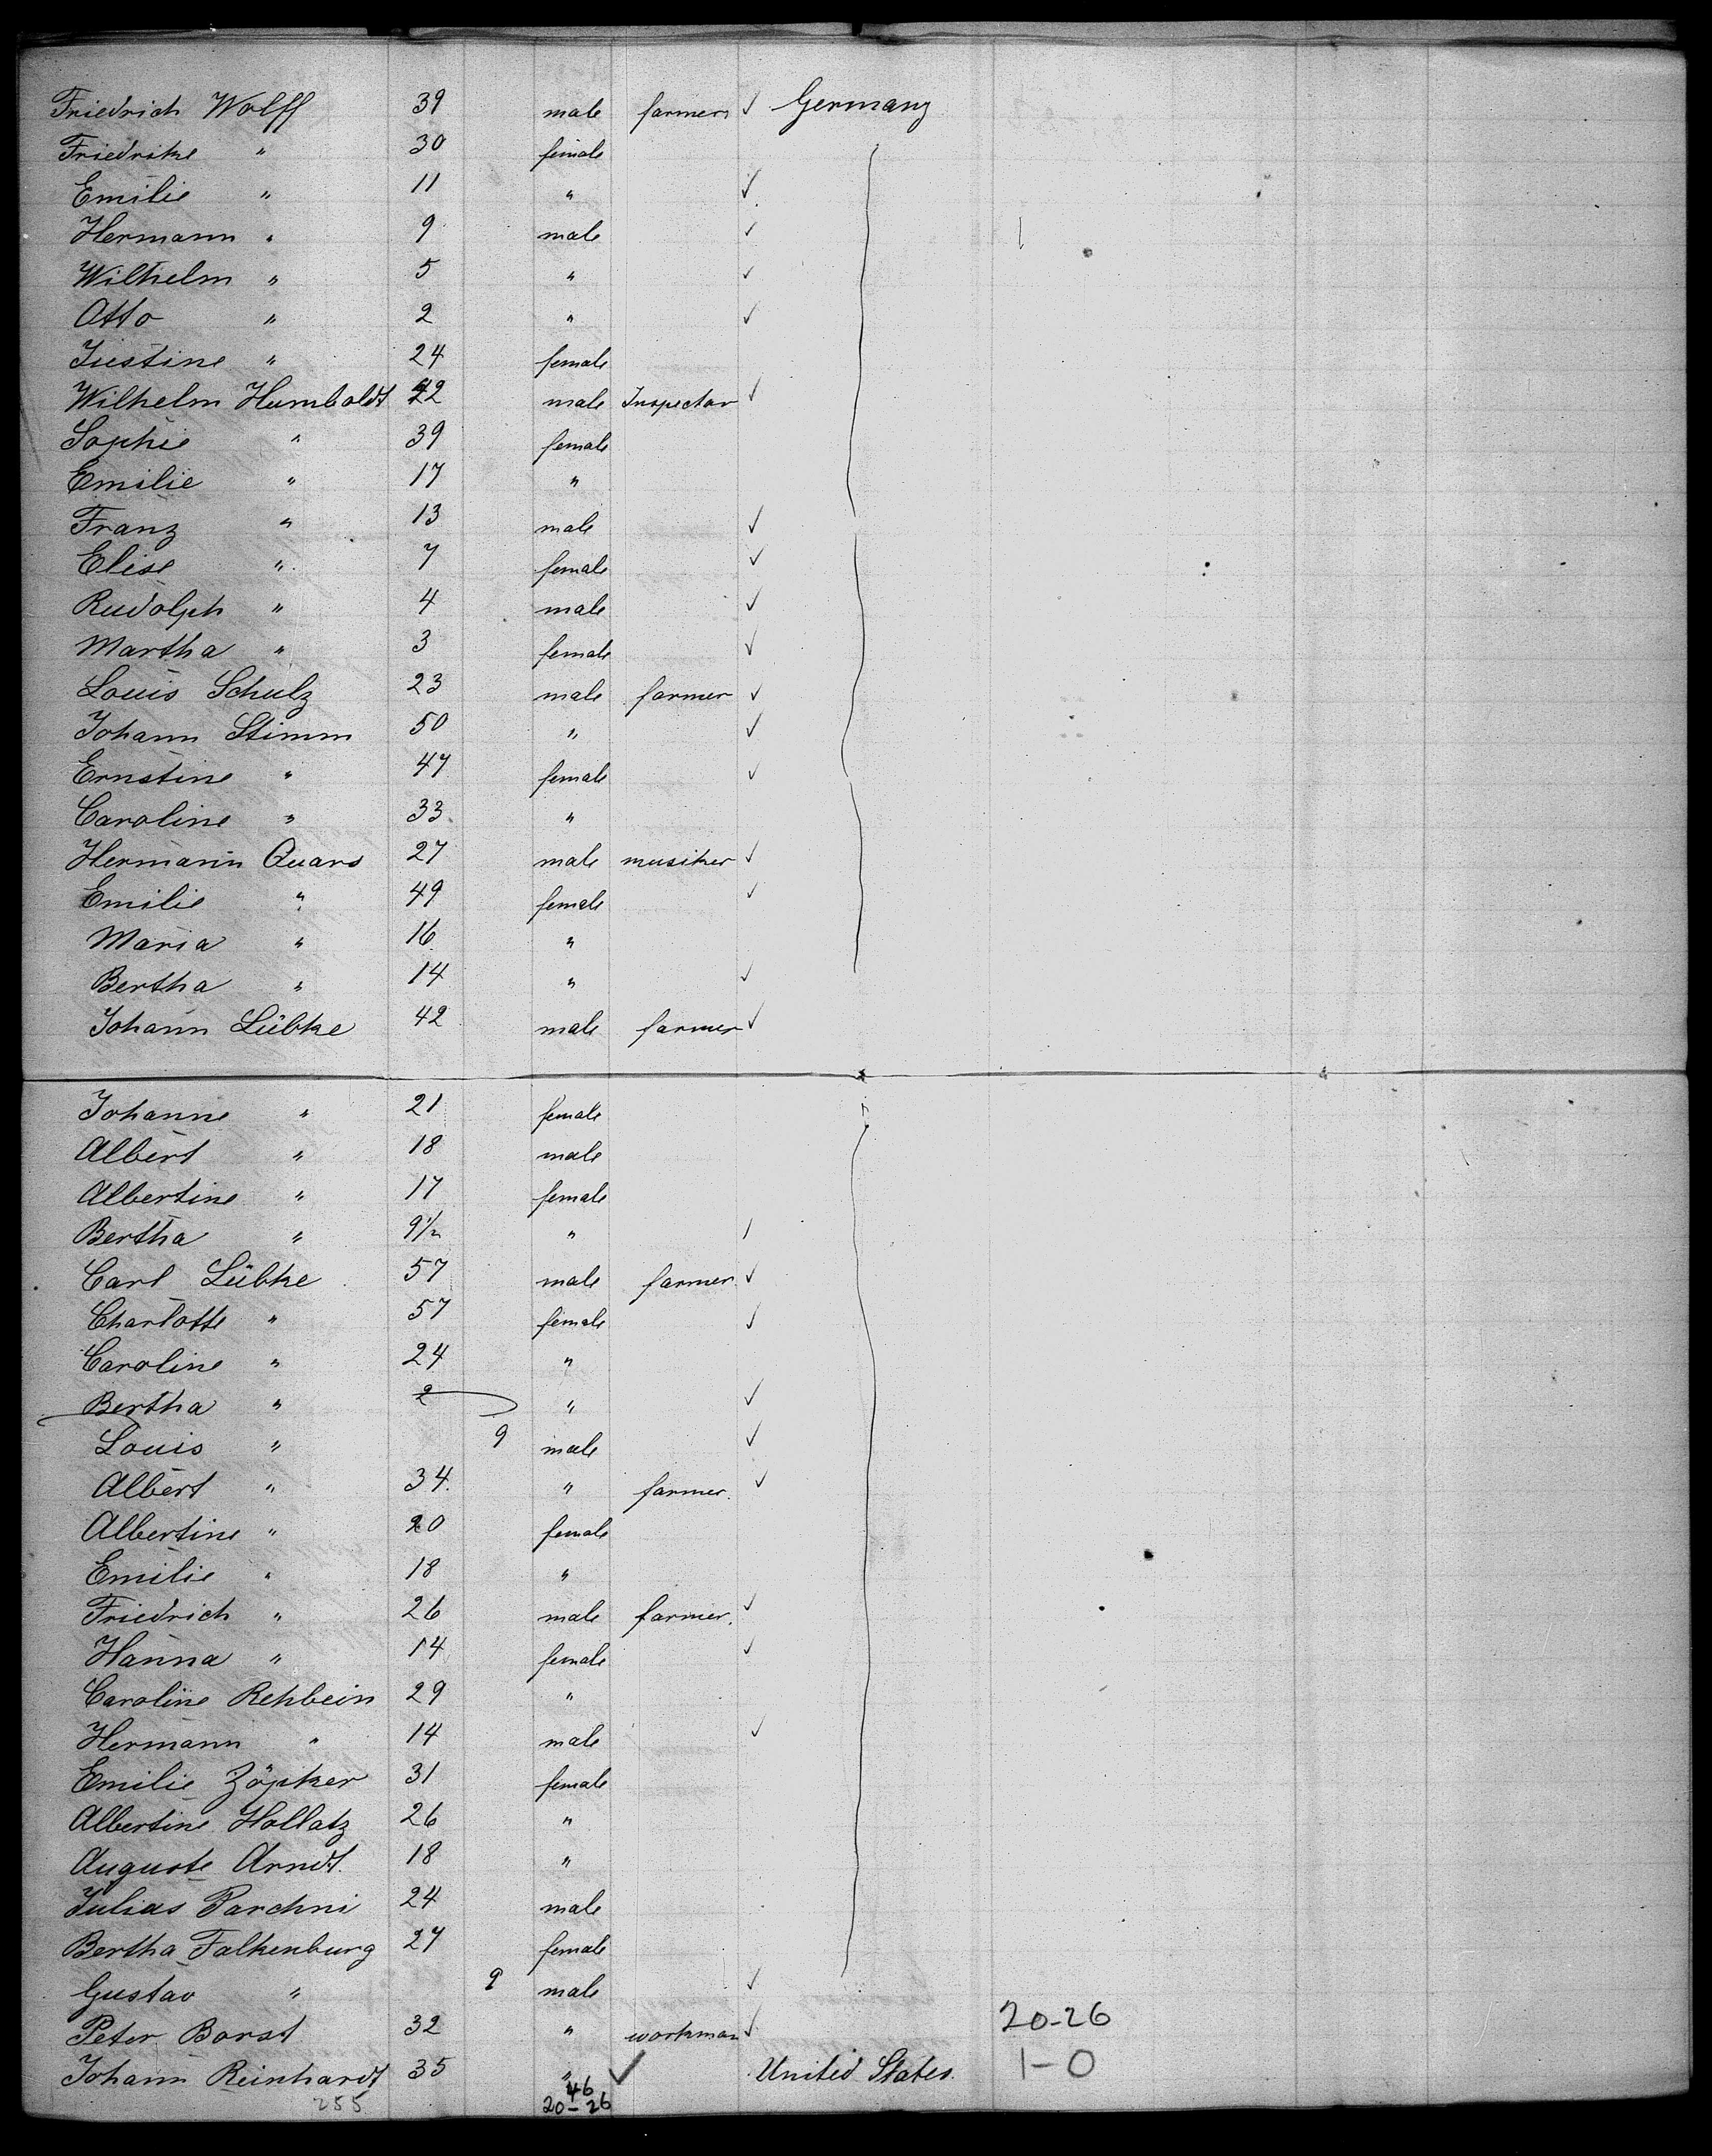 Friedrich Wolff 39 male farmer ✓ Germany
Friedrike " 30 female
Emilie " 11 " ✓
Hermann " 9 male ✓
Wilhelm " 5 " ✓
Otto " 2 " ✓
Justine " 24 female
Wilhelm Humboldt 42 male Inspector ✓
Sophie " 39 female
Emilie " 17 "
Franz " 13 male ✓
Elise " 7 female ✓
Rudolph " 4 male ✓
Martha " 3 female ✓
Louis Schulz 23 male farmer ✓
Johann Stimm 50 " ✓
Ernstine " 47 female ✓
Caroline " 33 "
Hermann Quars 27 male musiker ✓
Emilie " 49 female ✓
Maria " 16 "
Bertha " 14 " ✓
Johann Lübke 42 male farmer ✓
Johanne " 21 female
Albert " 18 male
Albertine " 17 female
Bertha " 9½ "
Carl Lübke 57 male farmer ✓
Charlotte " 57 female ✓
Caroline " 24 "
Bertha " 2 " ✓
Louis " 9 male ✓
Albert " 34. " farmer. ✓
Albertine " 20 female
Emilie " 18 "
Friedrich " 26 male farmer. ✓
Hanna " 14 female ✓
Caroline Rehbein 29 "
Hermann " 14 male ✓
Emilie Zöpker 31 female
Albertine Hollatz 26 "
Auguste Arndt. 18 "
Julius Parchni 24 male
Bertha Falkenburg 27 female
Gustav " 9 male ✓
Peter Borst 32 " workman ✓ 20-26
Johann Reinhardt 35 " ✓ United States. 1-0
255 46
20-26